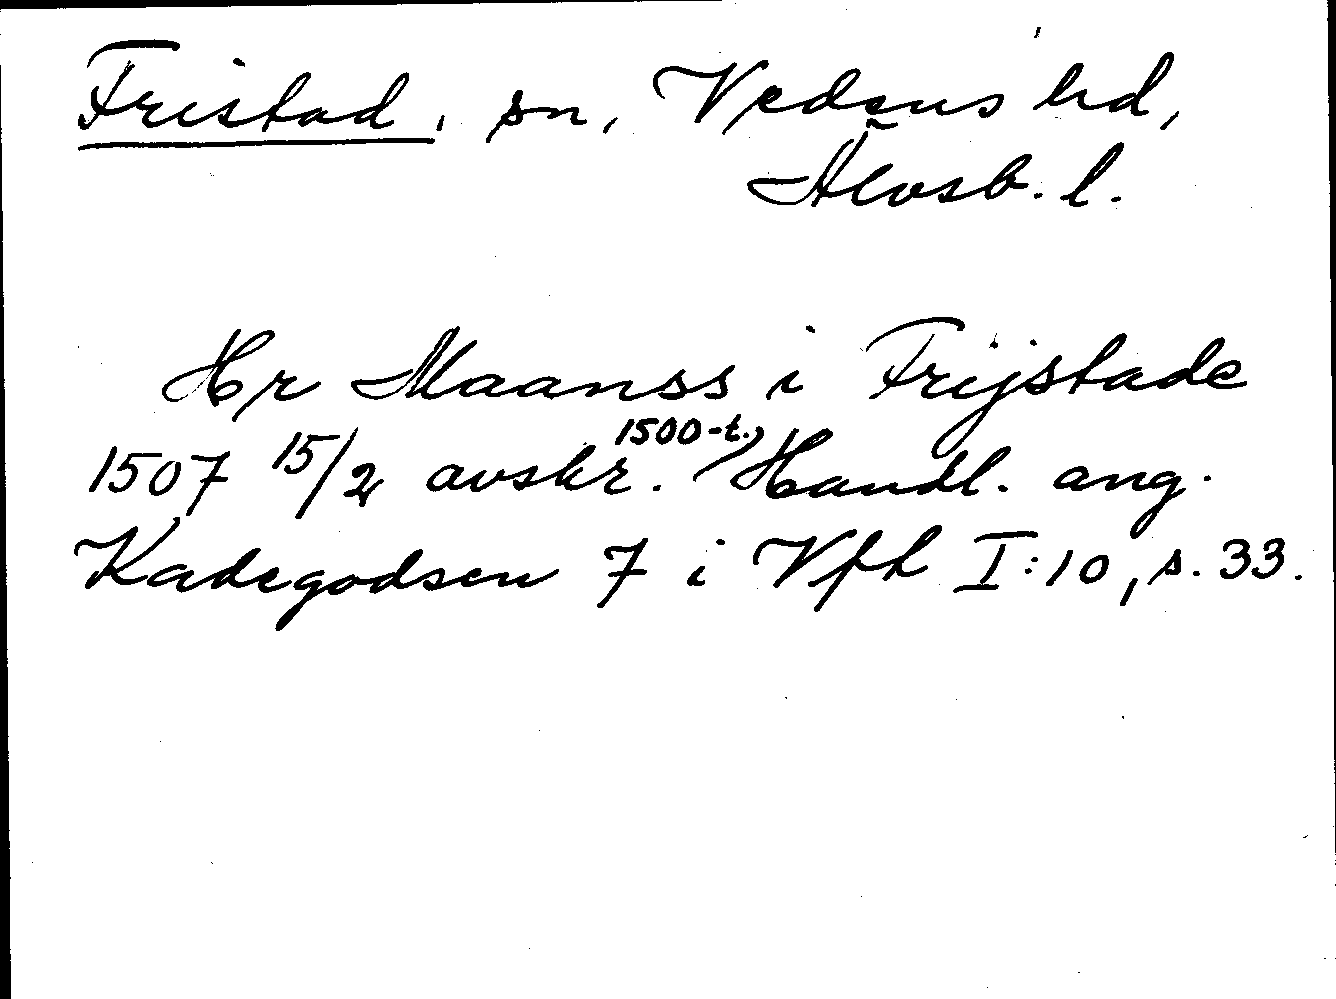 Fristad, sn, Vedens hd,
Älvsb. l.
Hr Maanss i Frijstade
1507 15/2 avskr. 1500-t., Handl. ang.
Kadegodsen 7 i Vfh I:10, s. 33.